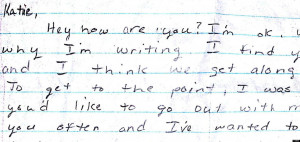 Katie,
Hey how are you? I'm ok,
why I'm writing I find
and I think we get along
To get to the point, I was
you'd like to go out with
you often and I've wanted to